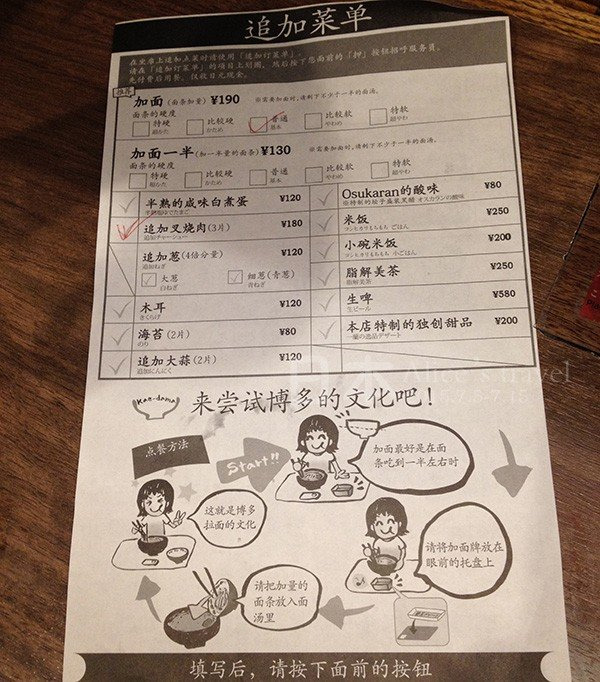 追加菜单
在坐席上追加点菜时请使用「追加订菜单」.
请在「追加订菜单」的项目上划圈, 然后按下您面前的「押」按钮招呼服务员.
先付费后用餐, 仅收日元现金.
推荐
加面 (面条加量) ¥190 ※需要加面时,请剩下不少于一半的面汤.
面条的硬度
特硬 比较硬 普通 比较软 特软
超かた かため 基本 やわめ 超やわ
加面一半 (加一半量的面条) ¥130 ※需要加面时,请剩下不少于一半的面汤.
面条的硬度
特硬 比较硬 普通 比较软 特软
超かた かため 基本 やわめ 超やわ
半熟的咸味白煮蛋 ¥120
半熟塩ゆでたまご
追加叉烧肉(3片) ¥180
追加チャーシュー
追加葱(4倍分量) ¥120
追加ねぎ
大葱 细葱(青葱)
白ねぎ 青ねぎ
木耳 ¥120
きくらげ
海苔(2片) ¥80
のり
追加大蒜(2片) ¥120
追加にんにく
Osukaran的酸味 ¥80
オスカランの酸味
米饭 ¥250
ごはん
小碗米饭 ¥200
小ごはん
脂解美茶 ¥250
脂解美茶
生啤 ¥580
生ビール
本店特制的独创甜品 ¥200
一蘭の逸品デザート
Kae-dama
来尝试博多的文化吧!
点餐方法
Start!!
加面最好是在面
条吃到一半左右时
请将加面牌放在
眼前的托盘上
请把加量的
面条放入面
汤里
这就是博多
拉面的文化
填写后，请按下面前的按钮